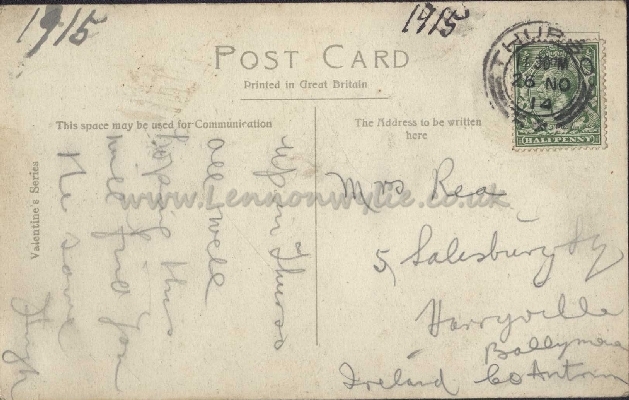 1915
1915
POST CARD
Printed in Great Britain
This space may be used for Communication
The Address to be written
here
Valentine's Series
THURSO
26 NO
14
HALFPENNY
up in Thurso
all well
hoping this
will find you
the same
Hugh
Mrs Rea
5 Salesbury Sq
Harryville
Ballymena
Ireland Co Antrim
www.Lennonwylie.co.uk